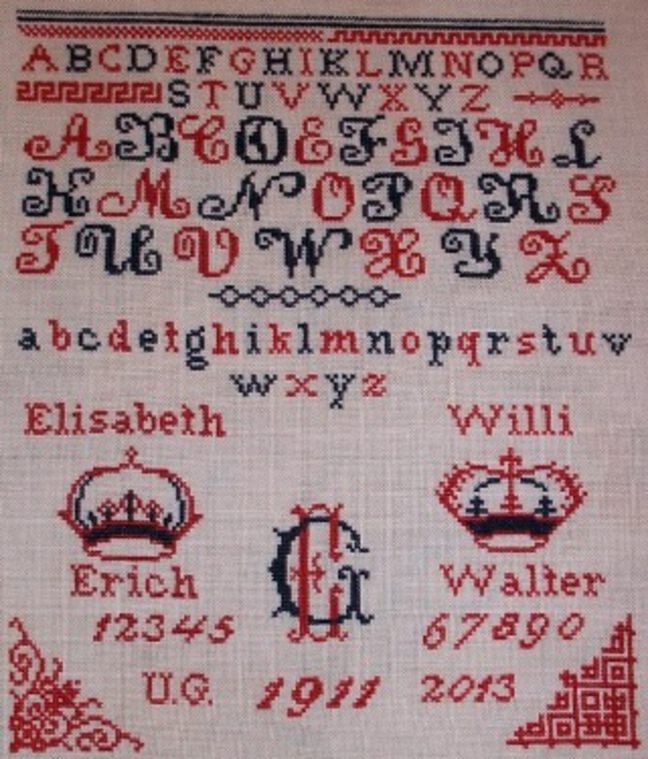 A B C D E F G H I K L M N O P Q R
S T U V W X Y Z
A B C D E F G I H L
K M N O P Q R S
T U V W X Y Z
a b c d e f g h i k l m n o p q r s t u v
w x y z
Elisabeth Willi
Erich Walter
1 2 3 4 5 6 7 8 9 0
U.G. 1911 2013